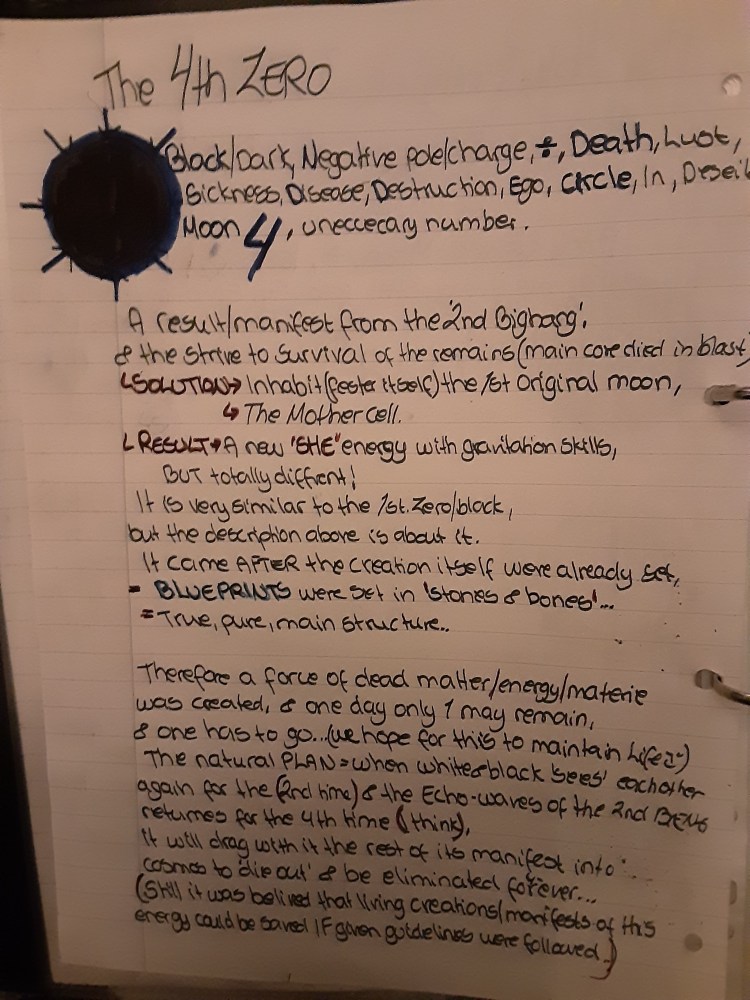 The 4th ZERO
Black/Dark, Negative pole/charge, ÷, Death, Lust,
Sickness, Disease, Destruction, Ego, Circle, In,
Moon 4, uneccecary number.
A result/manifest from the '2nd Bigbang'.
& the strive to survival of the remains (main core died in blast)
↳SOLUTION→ Inhabit (fester itself) the 1st original moon,
↳ The Mothercell.
↳RESULT→ A new "SHE" energy with gravitation skills,
BUT totally diffrent!
It is very similar to the 1st. Zero/black,
but the description above is about it.
It came AFTER the creation itself were already set,
- BLUEPRINTS were set in 'stones & bones'...
= True, pure, main structure..
Therefore a force of dead matter/energy/materie
was created, & one day only 1 may remain,
& one has to go...(we hope for this to maintain Life)
The natural PLAN = when white&black 'sees' eachother
again for the (2nd time) & the Echo-waves of the 2nd
returnes for the 4th time (I think),
it will drag with it the rest of its manifest into
cosmos to 'die out' & be eliminated forever...
(Still it was belived that living creations/manifests of this
energy could be saved IF given guidelines were followed.)